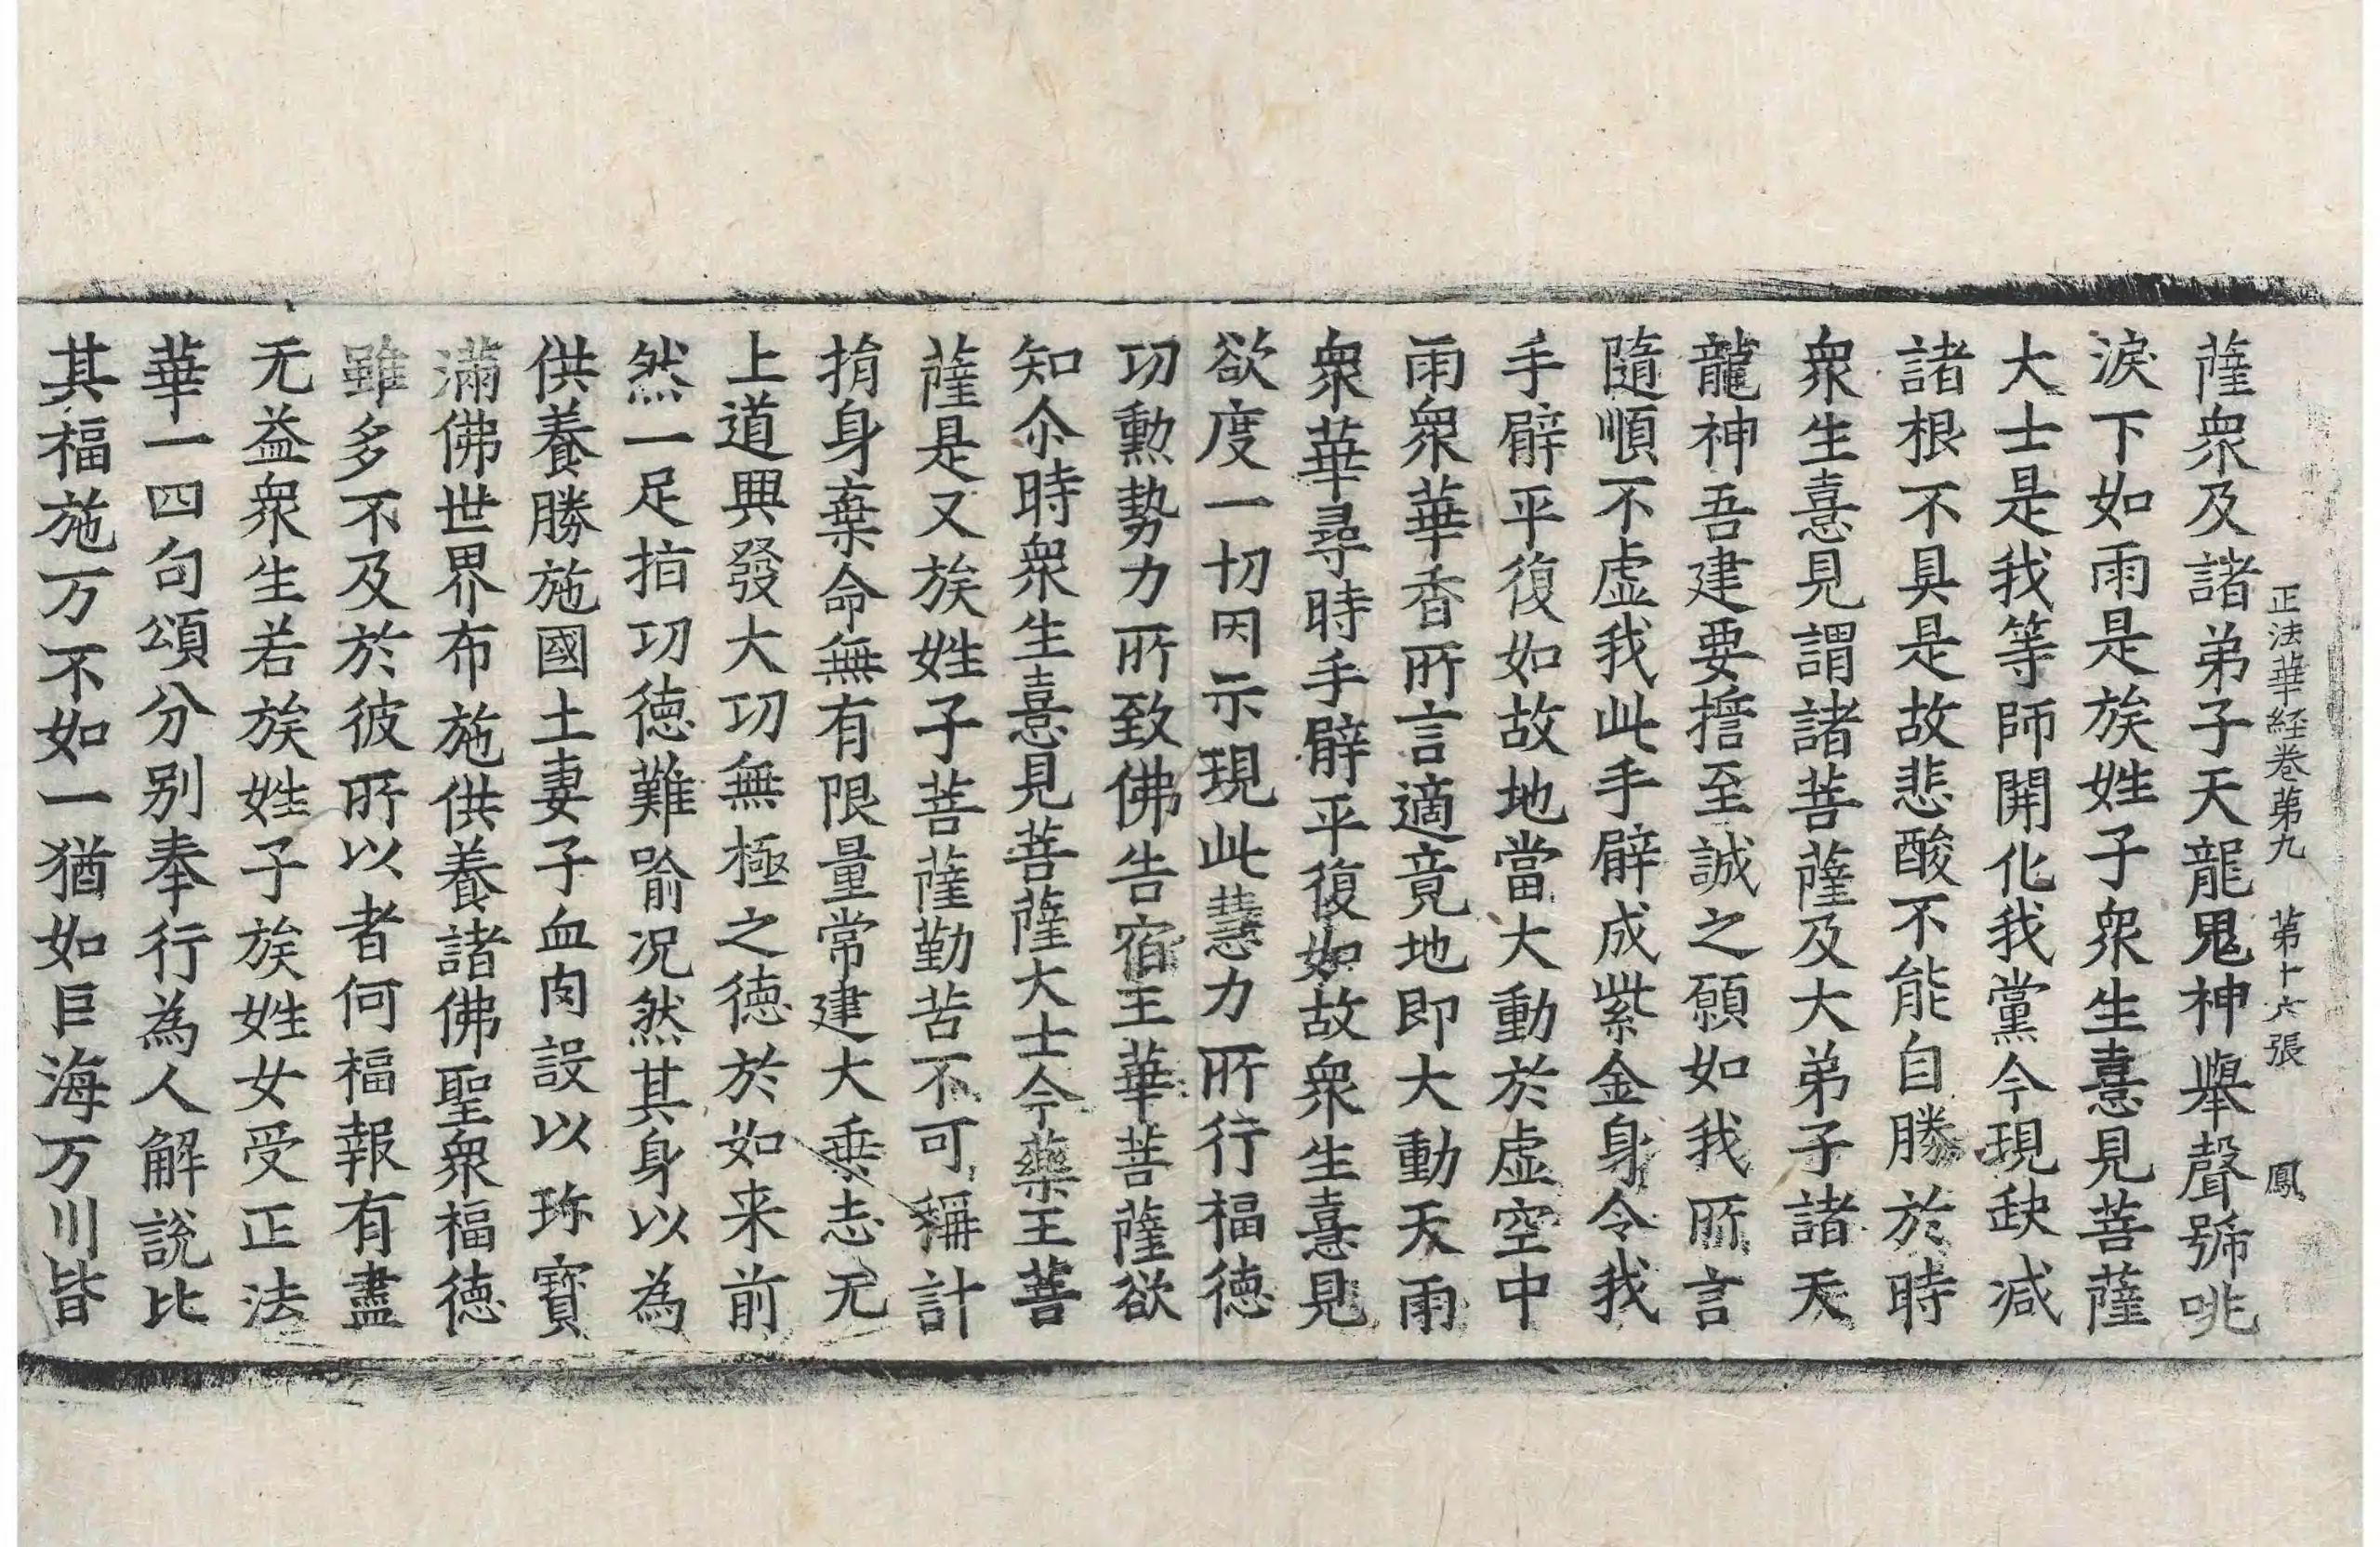 正法華経卷第九 第十六張 鳳
薩衆及諸弟子天龍鬼神舉聲號咷
淚下如雨是族姓子衆生憙見菩薩
大士是我等師開化我黨今現缺減
諸根不具是故悲酸不能自勝於時
衆生憙見謂諸菩薩及大弟子諸天
龍神吾建要擔至誠之願如我所言
隨順不虛我此手臂成紫金身令我
手臂平復如故地當大動於虛空中
雨衆華香所言適竟地即大動天雨
衆華尋時手臂平復如故衆生憙見
欲度一切因示現此慧力所行福德
功勳勢力所致佛告宿王華菩薩欲
知尒時衆生憙見菩薩大士今藥王菩
薩是又族姓子菩薩勤苦不可稱計
捐身棄命無有限量常建大乗志无
上道興發大功無極之德於如来前
然一足指功德難喻况然其身以為
供養勝施國土妻子血肉設以珎寶
滿佛世界布施供養諸佛聖衆福德
雖多不及於彼所以者何福報有盡
无益衆生若族姓子族姓女受正法
華一四句頌分别奉行為人解說比
其福施万不如一猶如巨海万川皆